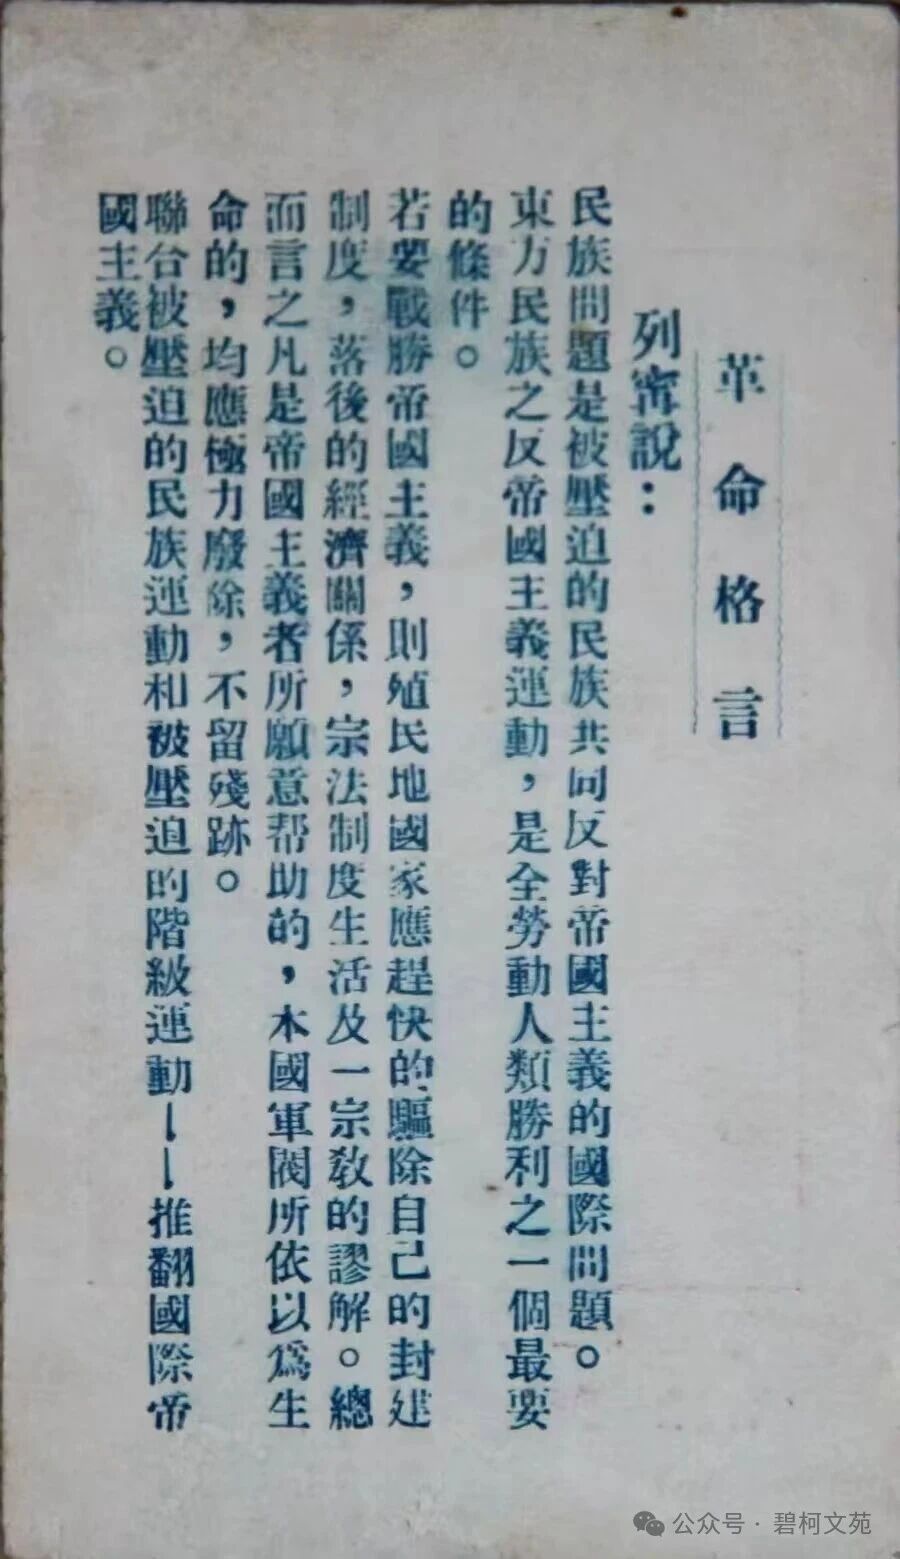 革命格言
列甯說：
民族問題是被壓迫的民族共同反對帝國主義的國際問題。
東方民族之反帝國主義運動，是全勞動人類勝利之一個最要
的條件。
若要戰勝帝國主義，則殖民地國家應趕快的驅除自己的封建
制度，落後的經濟關係，宗法制度生活及一宗教的謬解。總
而言之凡是帝國主義者所願意帮助的，本國軍閥所依以爲生
命的，均應極力廢除，不留殘跡。
聯合被壓迫的民族運動和被壓迫的階級運動——推翻國際帝
國主義。
公众号·碧柯文苑